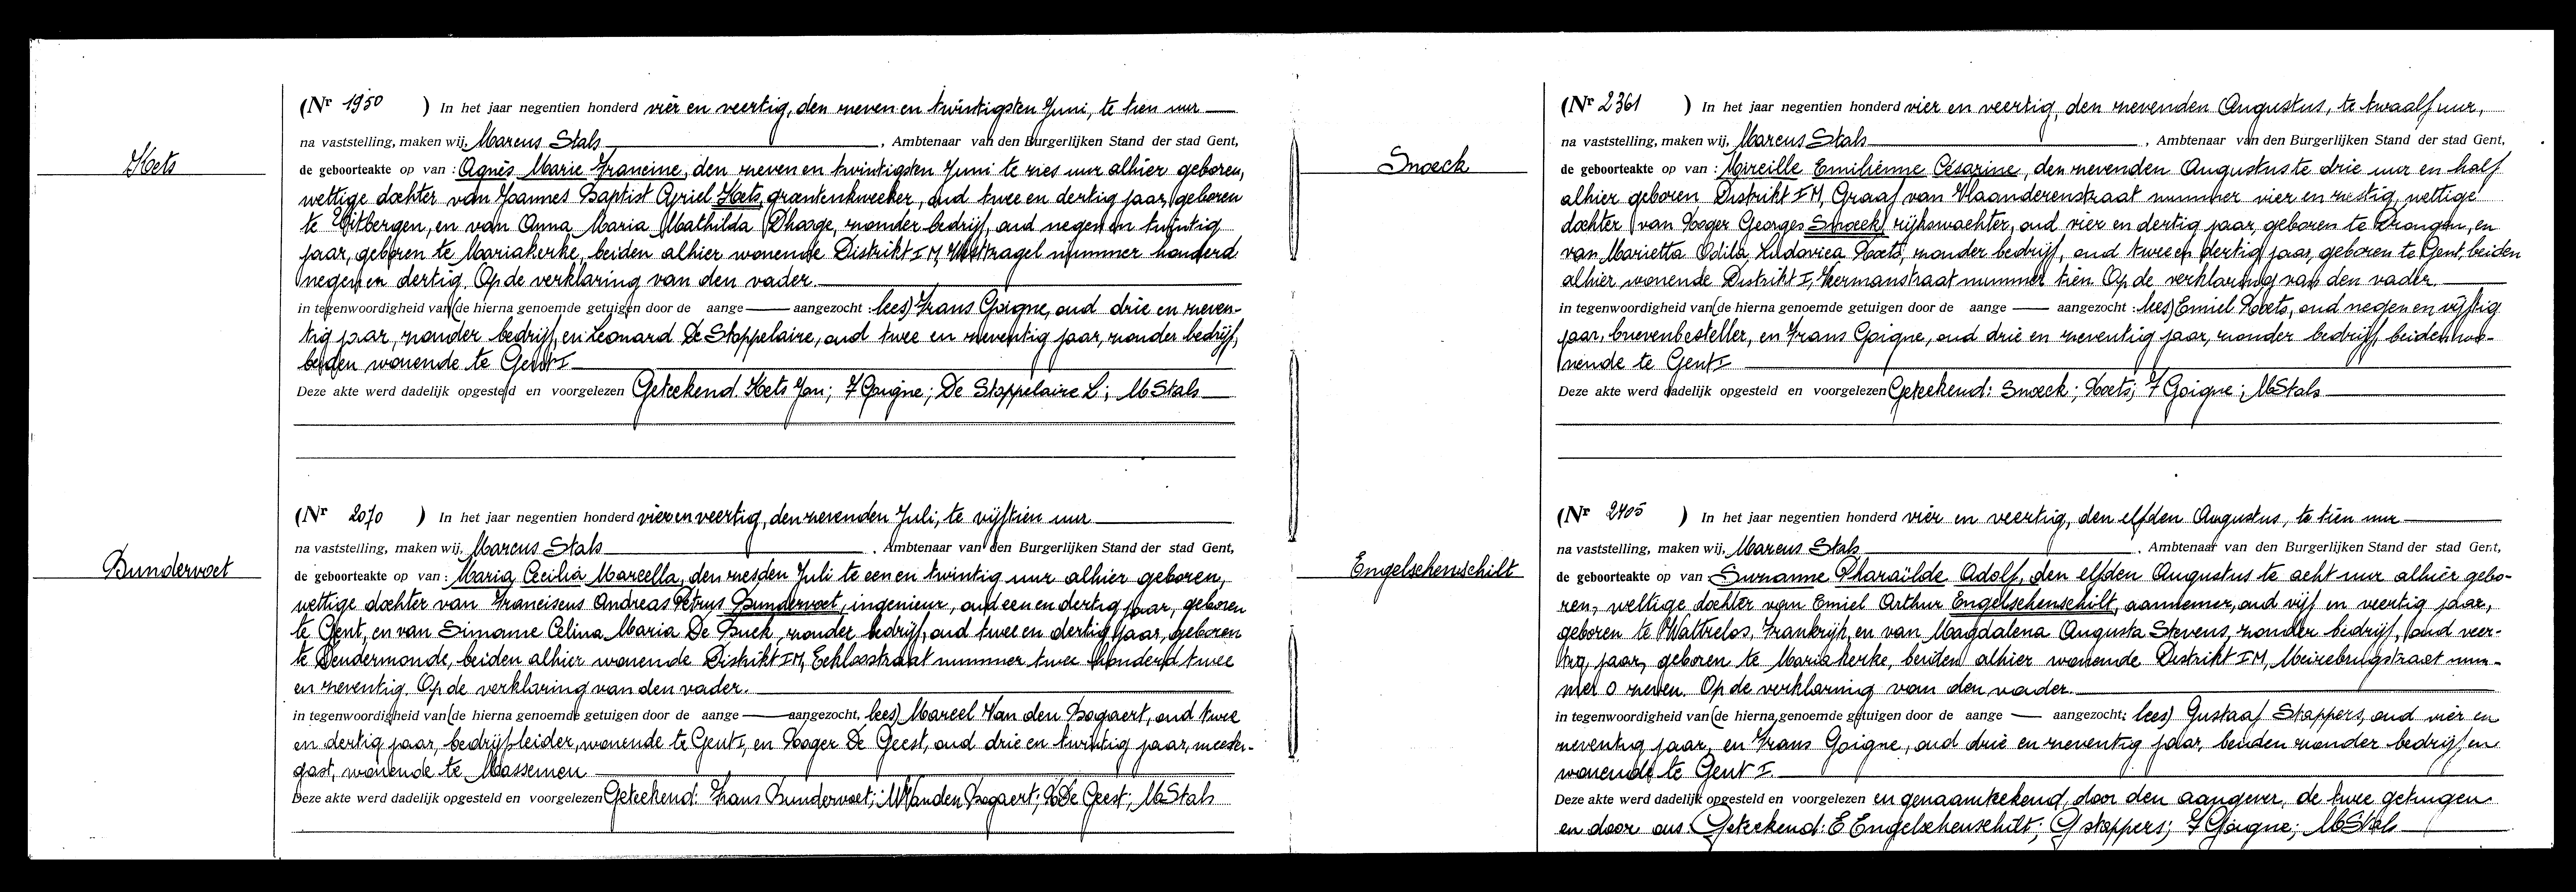 Hoets
(Nr 1950 ) In het jaar negentien honderd vier en veertig, den zeven en twintigsten Juni, te tien uur
na vaststelling, maken wij, Marcus Stals, Ambtenaar van den Burgerlijken Stand der stad Gent,
de geboorteakte op van : Agnès Marie Francine, den zeven en twintigsten Juni te zes uur alhier geboren,
wettige dochter van Joannes Baptist Cyriel Hoets, groentenkweeker, oud twee en dertig jaar, geboren
te Uitbergen, en van Anna Maria Mathilda Dhaege, zonder bedrijf, oud negen en twintig
jaar, geboren te Mariakerke, beiden alhier wonende Distrikt I M, nummer honderd
negen en dertig. Op de verklaring van den vader.
in tegenwoordigheid van (de hierna genoemde getuigen door de aange — aangezocht : lees) Frans Goigne, oud drie en zeven-
tig jaar, zonder bedrijf, en Leonard De Stoppelaire, oud twee en zeventig jaar, zonder bedrijf,
beiden wonende te Gent I
Deze akte werd dadelijk opgesteld en voorgelezen Geteekend. Hoets Jan; F Goigne; De Stoppelaire L; M Stals
Bundervoet
(Nr 2070 ) In het jaar negentien honderd vier en veertig, den zevenden Juli, te vijftien uur
na vaststelling, maken wij, Marcus Stals, Ambtenaar van den Burgerlijken Stand der stad Gent,
de geboorteakte op van : Maria Cecilia Marcella, den zesden Juli te een en twintig uur alhier geboren,
wettige dochter van Franciscus Andreas Petrus Bundervoet, ingenieur, oud een en dertig jaar, geboren
te Gent, en van Simonne Celina Maria De Buck, zonder bedrijf, oud twee en dertig jaar, geboren
te Dendermonde, beiden alhier wonende Distrikt I M, Eeklostraat nummer twee honderd twee
en zeventig. Op de verklaring van den vader.
in tegenwoordigheid van (de hierna genoemde getuigen door de aange — aangezocht, lees) Marcel Van den Bogaert, oud twee
en dertig jaar, bedrijfsleider, wonende te Gent I, en Roger De Geest, oud drie en twintig jaar, meester-
gast, wonende te Massemen
Deze akte werd dadelijk opgesteld en voorgelezen Geteekend: Frans Bundervoet; M Vanden Bogaert; R De Geest; M Stals
Snoeck
(Nr 2361 ) In het jaar negentien honderd vier en veertig, den zevenden Augustus, te twaalf uur,
na vaststelling, maken wij, Marcus Stals, Ambtenaar van den Burgerlijken Stand der stad Gent,
de geboorteakte op van : Mireille Emilienne Césarine, den zevenden Augustus te drie uur en half
alhier geboren Distrikt I M, Graaf van Vlaanderenstraat nummer vier en zestig, wettige
dochter van Roger Georges Snoeck, rijkswachter, oud vier en dertig jaar, geboren te Drongen, en
van Marietta Odila Ludovica Roets, zonder bedrijf, oud twee en dertig jaar, geboren te Gent, beiden
alhier wonende Distrikt I, nummer tien. Op de verklaring van den vader.
in tegenwoordigheid van (de hierna genoemde getuigen door de aange — aangezocht : lees) Emiel Roets, oud negen en vijftig
jaar, brievenbesteller, en Frans Goigne, oud drie en zeventig jaar, zonder bedrijf, beiden wo-
nende te Gent I
Deze akte werd dadelijk opgesteld en voorgelezen Geteekend: Snoeck; Roets; F Goigne; M Stals
Engelschenschilt
(Nr 2405 ) In het jaar negentien honderd vier en veertig, den elfden Augustus, te tien uur
na vaststelling, maken wij, Marcus Stals, Ambtenaar van den Burgerlijken Stand der stad Gent,
de geboorteakte op van Suzanne Pharaïlde Adolf, den elfden Augustus te acht uur alhier gebo-
ren, wettige dochter van Emiel Arthur Engelschenschilt, aannemer, oud vijf en veertig jaar,
geboren te Wattrelos, Frankrijk, en van Magdalena Augusta Stevens, zonder bedrijf, oud veer-
tig jaar, geboren te Mariakerke, beiden alhier wonende Distrikt I M, Meirebrugstraat num-
mer 0 zeven. Op de verklaring van den vader.
in tegenwoordigheid van (de hierna genoemde getuigen door de aange — aangezocht: lees) Gustaaf Stappers, oud vier en
zeventig jaar, en Frans Goigne, oud drie en zeventig jaar, beiden zonder bedrijf en
wonende te Gent I.
Deze akte werd dadelijk opgesteld en voorgelezen en genaamteekend, door den aangever, de twee getuigen
en door ons. Geteekend: E Engelschenschilt; G stappers; F Goigne; M Stals